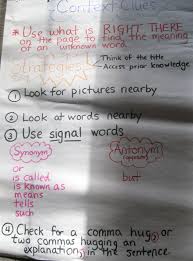 Context Clues
* Use what is RIGHT THERE
on the page to find the meaning
of an unknown word.
Strategies
Think of the title
Access prior knowledge
① Look for pictures nearby
② Look at words nearby
③ Use signal words
Synonym
Antonym
(opposite)
or
is called
is known as
means
tells
such
but
④ Check for a comma hug, or
two commas hugging an
explanation, in the sentence.